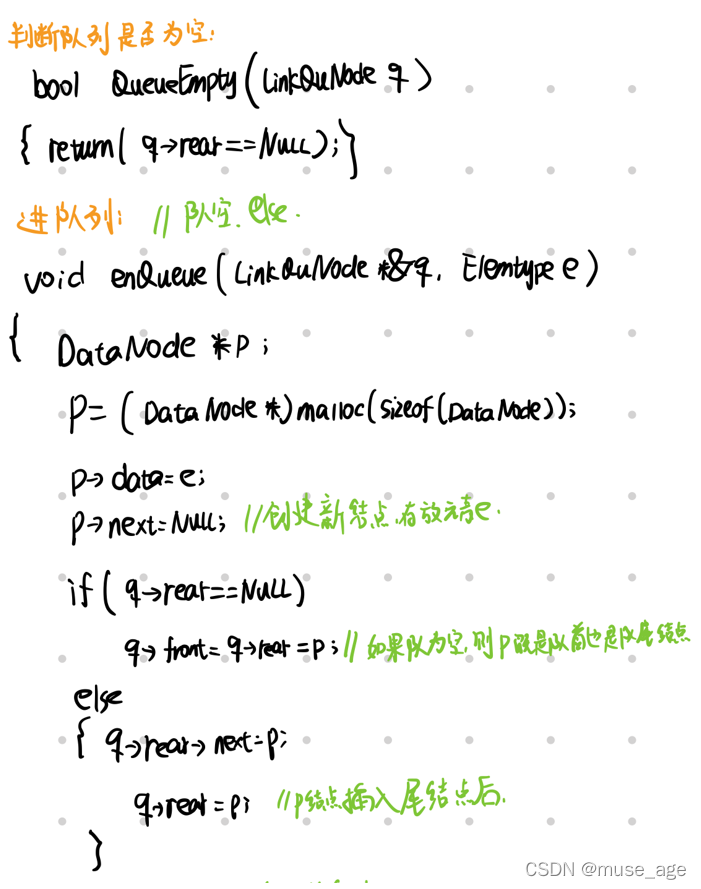 判断队列是否为空:
bool QueueEmpty(LinkQuNode q)
{ return( q->rear==NULL); }
进队列: // 队空. else.
void enQueue(LinkQuNode *&q, Elemtype e)
{ DataNode *p;
p=(DataNode *)malloc(sizeof(DataNode));
p->data=e;
p->next=NULL; //创建新结点,存放元素e.
if( q->rear==NULL)
q->front=q->rear=p; // 如果队为空,则p既是队首也是队尾结点
else
{ q->rear->next=p;
q->rear=p; //p结点插入尾结点后.
}
CSDN @muse_age